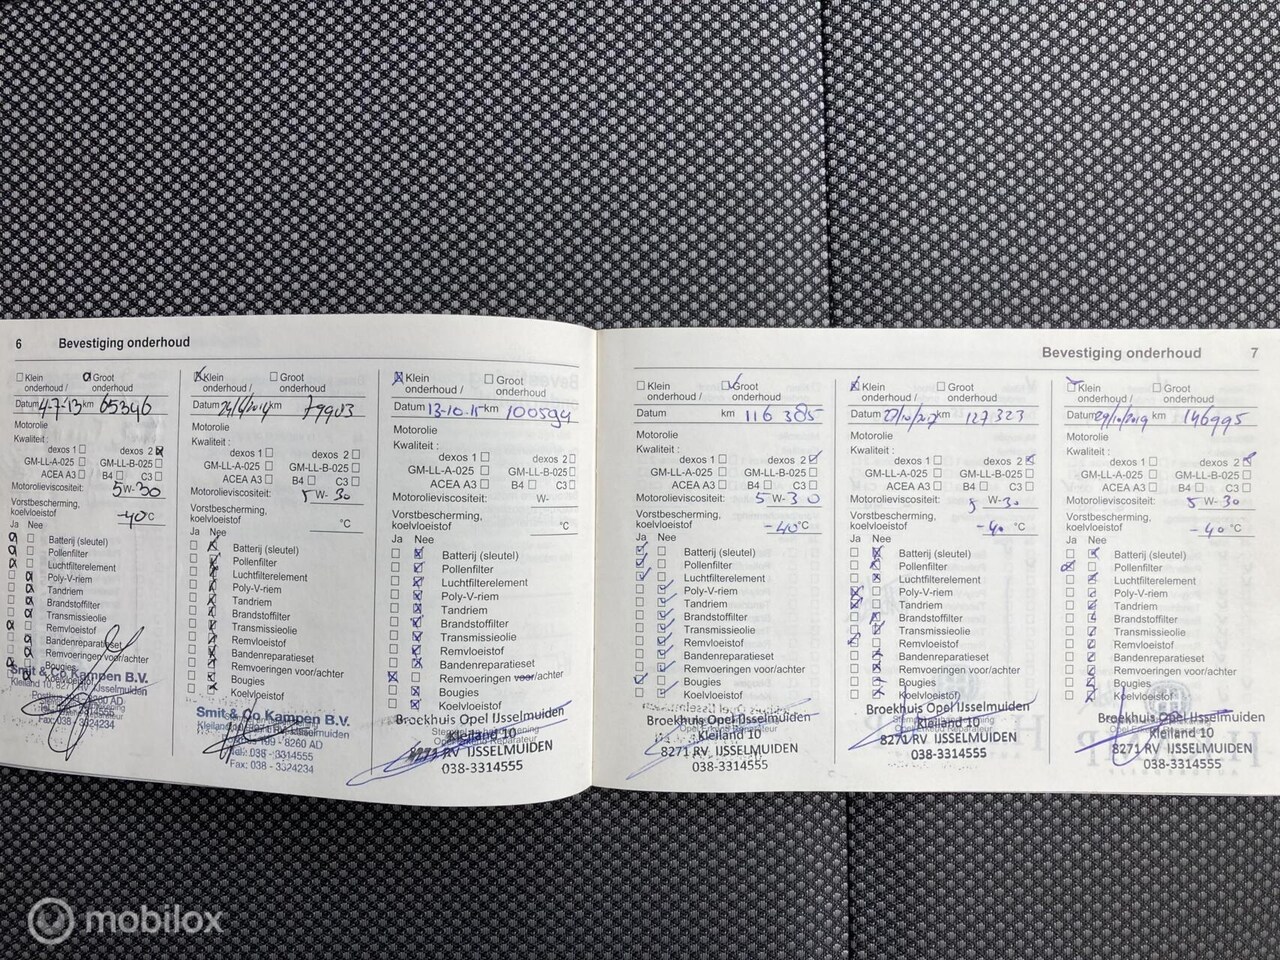 6 Bevestiging onderhoud
Klein onderhoud / Groot onderhoud
Datum 4-7-'13 km 65346
Motorolie
Kwaliteit :
dexos 1 dexos 2
GM-LL-A-025 GM-LL-B-025
ACEA A3 B4 C3
Motorolieviscositeit: 5W-30
Vorstbescherming,
koelvloeistof -40°C
Ja Nee
Batterij (sleutel)
Pollenfilter
Luchtfilterelement
Poly-V-riem
Tandriem
Brandstoffilter
Transmissieolie
Remvloeistof
Bandenreparatieset
Remvoeringen voor/achter
Bougies
Koelvloeistof
Smit & Co Kampen B.V.
Kleiland 10, 8271 RV IJsselmuiden
Fax: 038 - 3324234
Klein onderhoud / Groot onderhoud
Datum km 79903
Motorolie
Kwaliteit :
dexos 1 dexos 2
GM-LL-A-025 GM-LL-B-025
ACEA A3 B4 C3
Motorolieviscositeit: 5 W- 30
Vorstbescherming,
koelvloeistof °C
Ja Nee
Batterij (sleutel)
Pollenfilter
Luchtfilterelement
Poly-V-riem
Tandriem
Brandstoffilter
Transmissieolie
Remvloeistof
Bandenreparatieset
Remvoeringen voor/achter
Bougies
Koelvloeistof
Smit & Co Kampen B.V.
8260 AD
038 - 3314555
Fax: 038 - 3324234
Klein onderhoud / Groot onderhoud
Datum 13-10-15 km 100594
Motorolie
Kwaliteit :
dexos 1 dexos 2
GM-LL-A-025 GM-LL-B-025
ACEA A3 B4 C3
Motorolieviscositeit: W-
Vorstbescherming,
koelvloeistof °C
Ja Nee
Batterij (sleutel)
Pollenfilter
Luchtfilterelement
Poly-V-riem
Tandriem
Brandstoffilter
Transmissieolie
Remvloeistof
Bandenreparatieset
Remvoeringen voor/achter
Bougies
Koelvloeistof
Broekhuis Opel IJsselmuiden
Kleiland 10
8271 RV IJSSELMUIDEN
038-3314555
Bevestiging onderhoud 7
Klein onderhoud / Groot onderhoud
Datum km 116 385
Motorolie
Kwaliteit :
dexos 1 dexos 2
GM-LL-A-025 GM-LL-B-025
ACEA A3 B4 C3
Motorolieviscositeit: 5 W-30
Vorstbescherming,
koelvloeistof -40°C
Ja Nee
Batterij (sleutel)
Pollenfilter
Luchtfilterelement
Poly-V-riem
Tandriem
Brandstoffilter
Transmissieolie
Remvloeistof
Bandenreparatieset
Remvoeringen voor/achter
Bougies
Koelvloeistof
Broekhuis Opel IJsselmuiden
Kleiland 10
8271 RV IJSSELMUIDEN
038-3314555
Klein onderhoud / Groot onderhoud
Datum km 127323
Motorolie
Kwaliteit :
dexos 1 dexos 2
GM-LL-A-025 GM-LL-B-025
ACEA A3 B4 C3
Motorolieviscositeit: 5 W-30
Vorstbescherming,
koelvloeistof -40 °C
Ja Nee
Batterij (sleutel)
Pollenfilter
Luchtfilterelement
Poly-V-riem
Tandriem
Brandstoffilter
Transmissieolie
Remvloeistof
Bandenreparatieset
Remvoeringen voor/achter
Bougies
Koelvloeistof
Broekhuis Opel IJsselmuiden
Kleiland 10
8271 RV IJSSELMUIDEN
038-3314555
Klein onderhoud / Groot onderhoud
Datum 29/10/2019 km 146995
Motorolie
Kwaliteit :
dexos 1 dexos 2
GM-LL-A-025 GM-LL-B-025
ACEA A3 B4 C3
Motorolieviscositeit: 5 W-30
Vorstbescherming,
koelvloeistof -40°C
Ja Nee
Batterij (sleutel)
Pollenfilter
Luchtfilterelement
Poly-V-riem
Tandriem
Brandstoffilter
Transmissieolie
Remvloeistof
Bandenreparatieset
Remvoeringen voor/achter
Bougies
Koelvloeistof
Broekhuis Opel IJsselmuiden
Kleiland 10
8271 RV IJSSELMUIDEN
038-3314555
mobilox